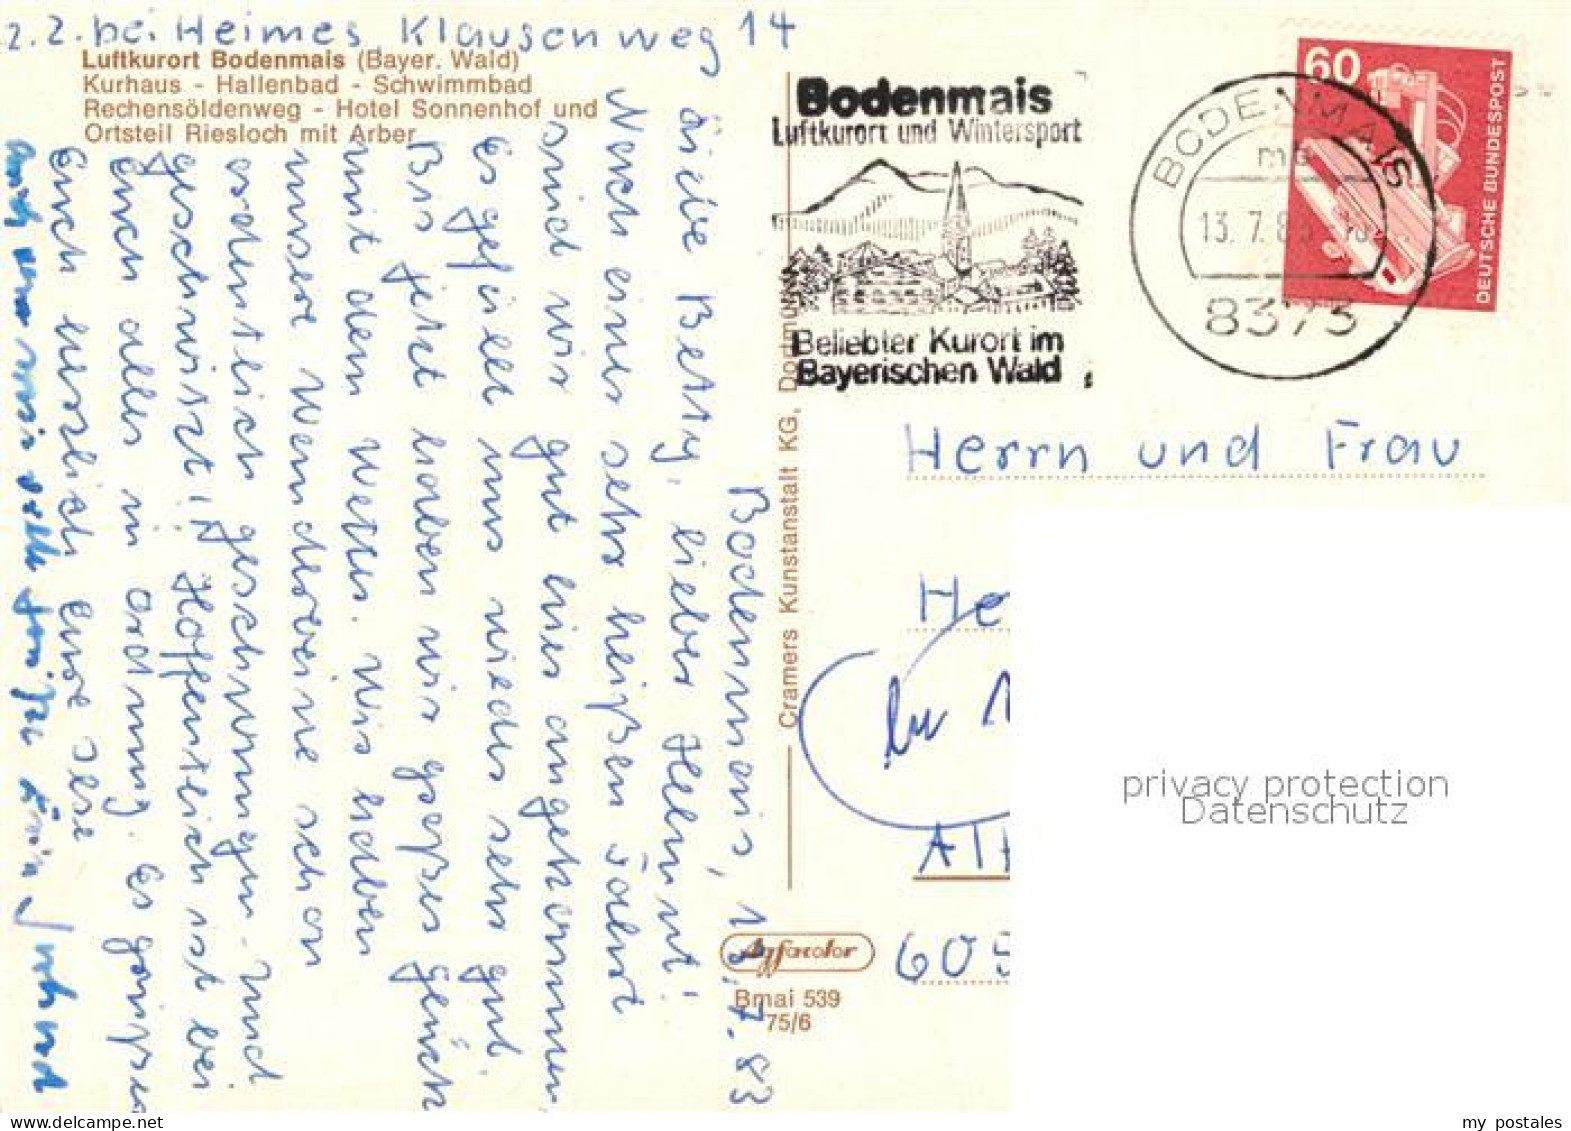 z.Z. bei Heimes Klausenweg 14
Luftkurort Bodenmais (Bayer. Wald)
Kurhaus - Hallenbad - Schwimmbad
Rechensöldenweg - Hotel Sonnenhof und
Ortsteil Riesloch mit Arber
Bodenmais, 13.7.83
Liebe Betty, lieber Helmut!
Nach einer sehr heißen Fahrt
sind wir gut hier angekommen
Es gefällt uns wieder sehr gut.
Bis jetzt haben wir großes Glück
mit dem Wetter. Wir haben
unsere Wandervereine schon
ordentlich geschwungen. und
geschwitzt! Hoffentlich ist bei
Euch alles in Ordnung. Es grüßen
Euch herzlich Eure Rese
Cramers Kunstanstalt KG, Dortmund
Agfacolor
Bmai 539
75/6
Bodenmais
Luftkurort und Wintersport
Beliebter Kurort im
Bayerischen Wald
BODENMAIS
ma
13.7.83
8373
60
DEUTSCHE BUNDESPOST
Herrn und Frau
He
605
privacy protection
Datenschutz
my_postales
DELCAMPE.NET